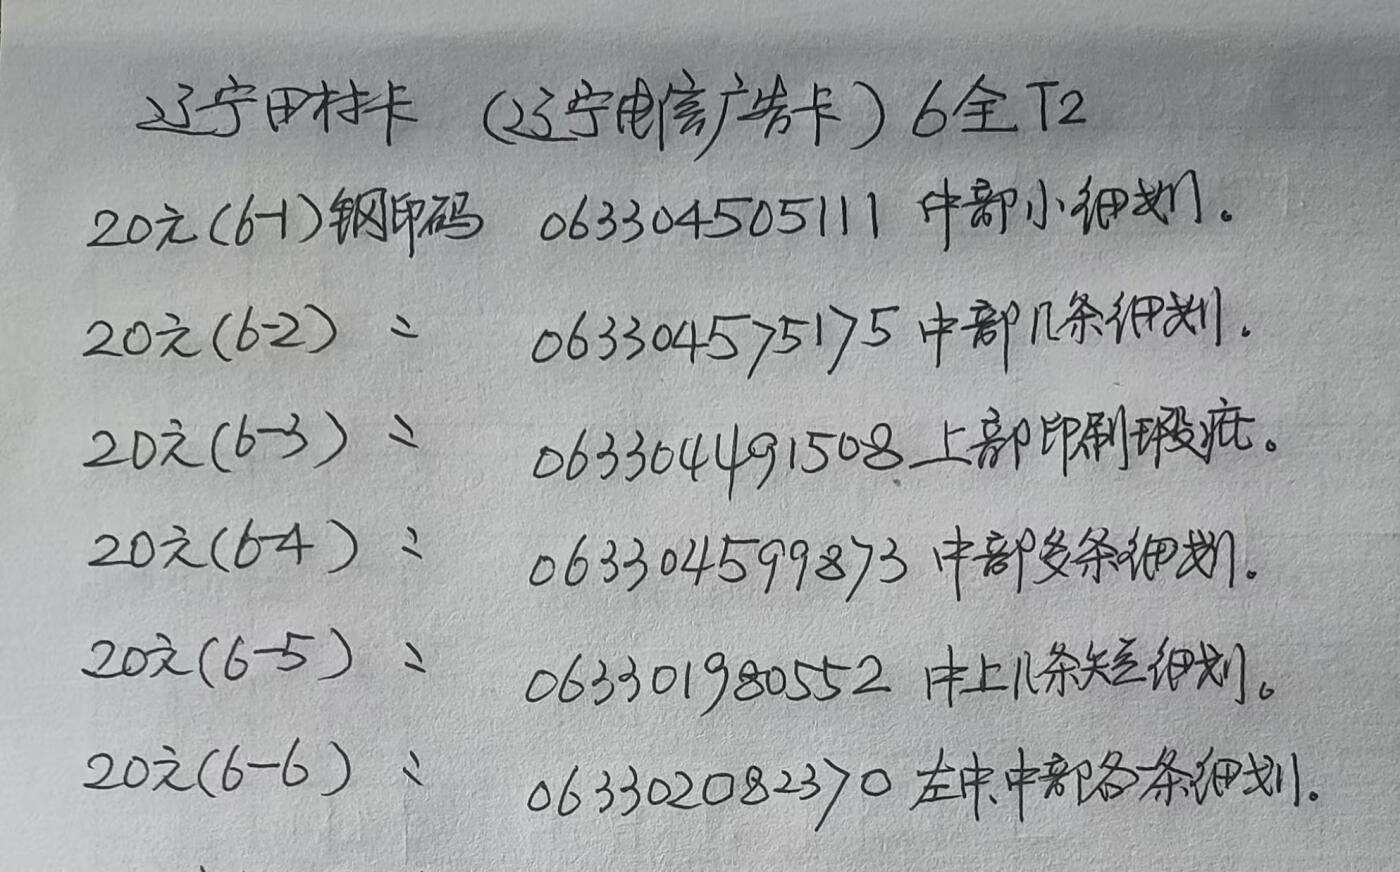 辽宁田村卡 (辽宁电信广告卡) 6全T2
20元(6-1)钢印码 063304505111 中部小细划。
20元(6-2) 〃 063304575175 中部几条细划.
20元(6-3) 〃 063304491508 上部印刷瑕疵。
20元(6-4) 〃 063304599873 中部多条细划.
20元(6-5) 〃 063301980552 中上几条短细划。
20元(6-6) 〃 063302082370 左中、中部各条细划.